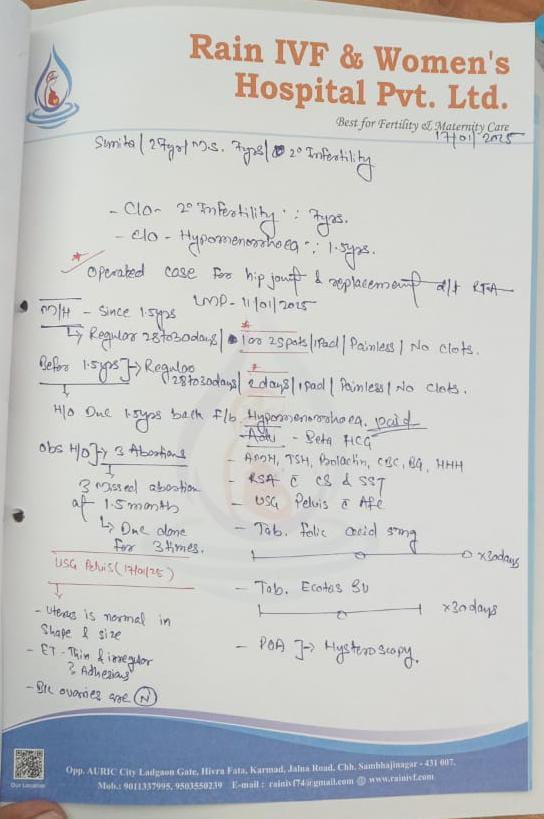 Rain IVF & Women's
Hospital Pvt. Ltd.
Best for Fertility & Maternity Care
17/01/2025
Sunita / 27yr / M.S. 7yrs / 2° Infertility
- C/O - 2° Infertility : 7yrs.
- C/O - Hypomenorrhoea : 1.5yrs.
* Operated case for hip joint & replacement d/t RTA
LMP - 11/01/2025
M/H - Since 1.5yrs
↳ Regular 28to30days / 1 or 2 spots / 1Pad / Painless / No Clots.
Befor 1.5yrs] → Regular
28to30days / 2 days / 1pad / Painless / No Clots.
H/O Dnc 1.5yrs back f/b Hypomenorrhoea. paid
Obs H/O] → 3 Abortions
3 Missed abortion
at 1.5 month
↳ Dnc done
for 3 times.
USG Pelvis (17/01/25)
- Uterus is normal in
Shape & size
- ET - Thin & irregular
? Adhesions
- B/L ovaries are (N)
Adv - Beta HCG
- AMH, TSH, Prolactin, CBC, BG, HHH
- RSA c̄ CS & SST
- USG Pelvis c̄ AFC
- Tab. folic acid 5mg
x30days
- Tab. Ecotas
x30days
- POA ] → Hysteroscopy.
Our Location
Opp. AURIC City Ladgaon Gate, Hivra Fata, Karmad, Jalna Road, Chh. Sambhajinagar - 431 007.
Mob.: 9011337995, 9503550239 E-mail : rainivf74@gmail.com @ www.rainivf.com